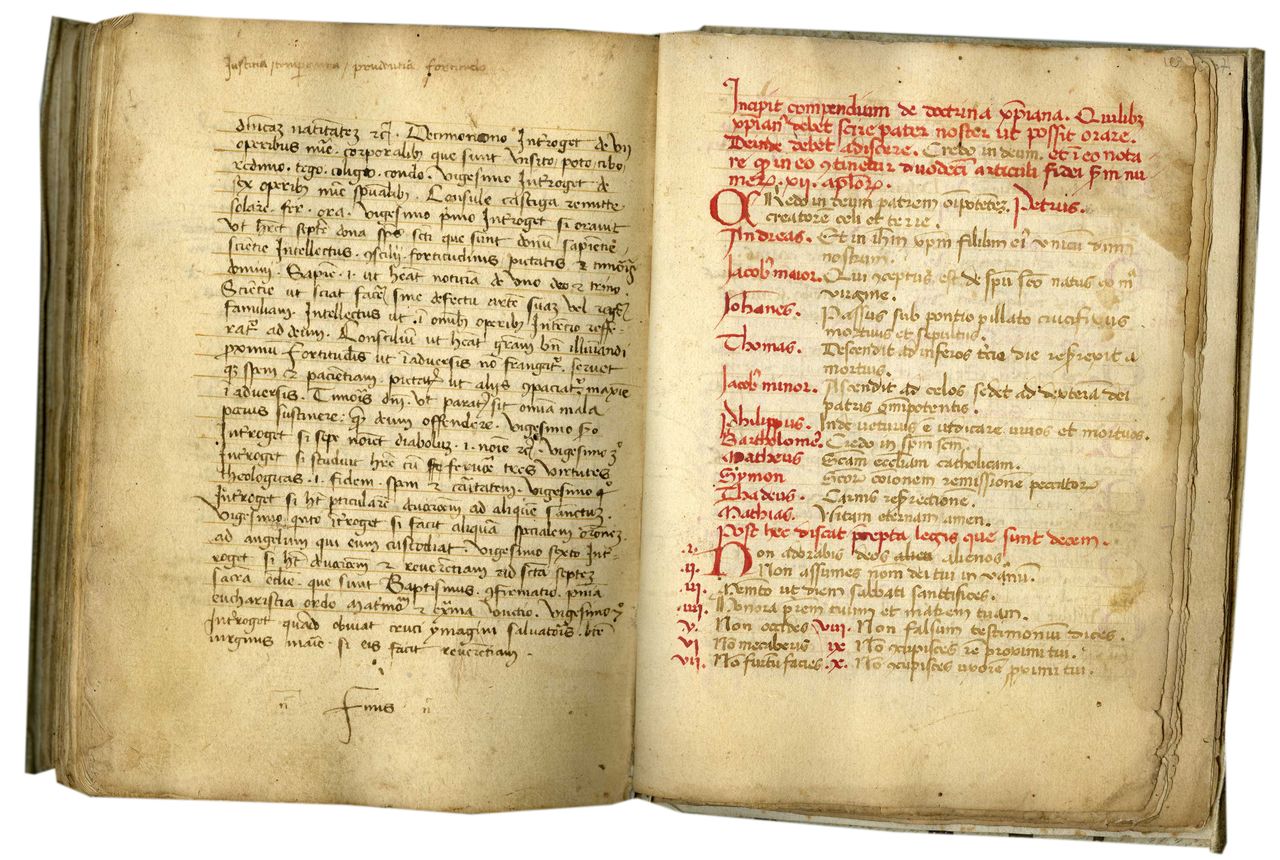 Justitia / temperantia / prudentia fortitudo
natiuitatez rcͥ. Decimonono Introget de VII
operibus mīe. corporalibꝫ que sunt Visito / poto / cibo /
redimo. tego. colligo. condo. Vigesimo Introget de
operibꝫ mīe spūalibꝫ. Consule castiga remitte
solare. fer. ora. Vigesimo pͥmo Introget si orauit
Vt heet septē dona spūs scti que sunt donū sapientie /
scietie Intellectus. gsilii fortitudinis pietatis & timoris
domini. Sapie .i. ut heat noticiā de Vno deo & trino
Scietie ut sciat facere sine defectu arte suaz vel
familiam. Intellectus ut. ī omnibꝫ operibꝫ Intecio reffe-
ratꝰ ad deum. Consilium ut heat grām bn̄ illuminandi
proximū Fortitudīs ut ī aduersis nō frangatꝰ. seruet
spem & pacientiam. pietatꝭ ut aliis ꝯpaciatꝰ maxīe
ī aduersis. Timoris dni. Vt paratꝰ sit omīa mala
pocius sustinere. qꝫ deum offendere. Vigesimo scͦo
Introget si sepe noīet diabolum .i. noīe rcͥ. Vigesimo 3ͦ
Introget si studuit here cū feruore tres Virtutes
theologicas .i. fidem. spem & caritatem. Vigesimo 4ͦ
Introget si ht pticularē deuocionem ad alique sanctum.
Vigesimo qnto Itroget si facit aliquā specialem oronez
ad angelum qui eum custodiat. Vigesimo sexto Int-
roget si ht deuociōem & reuerētiam ad scta septez
sacra ecclie. que sunt Baptismus. ꝯfirmatio. pnīa
eucharistia ordo matmō & exma Vnctio. Vigesimo 7ͦ
Introget quādo obuiat cruci ymagini saluatoris. bte
uirginis marie. si eis facit reuerētiam.
n̄ Finis n̄
Incipit compendium de doctrina xp̄iana. Quilibꝫ
xp̄ianꝰ debet scire pater noster ut possit orare.
Deinde debet adiscere. Credo in deum. et ī eo nota
re qꝫ in eo ꝯtinetur duodecī articuli fidei scdm nu
meꝝ. xii. aplōꝝ.
CRedo in deum patrem oīpotētez. Petrus.
creatore celi et terre.
Andreas. Et in ihm xp̄m filium eiꝰ Vnicū dnm
nostrum.
Jacobꝰ maior. Qui ꝯceptus. est de spū sco natus ex mͣ
Virgine.
Johanes. Passus sub pontio pillato crucifixus
mortuus et sepultus.
Thomas. Descendit ad inferos tercia die resurexit a
mortuis.
Jacobꝰ minor. Ascendit ad celos sedet ad dexterā dei
patris omīpotentis.
Philippus. Inde uēturus ē iudicare uiuos et mortuos.
Bartholomeꝰ. Credo in spm scm.
Matheus Scam eccliam catholicam.
Symon Scorꝝ coionem remissione peccatorꝝ
Thadeus. Carnis resurrectione.
Mathias. Vitam eternam amen.
Post hec discat precepta legis que sunt decem.
.i. Non adorabis deos alien alienos.
.ii. Non assumes nom dei tui in uanū.
.iii. Memto ut diem sabbati sanctifices.
.iiii. Honora prem tuum et matrem tuam.
V. Non occides Viii. Non falsum testimoniū dices
VI Nō mecaberis ix. Nō ꝯcupisces rē proximi tui.
Vii. Nō furtū facies. x. Nō ꝯcupisces uxorē proximi tui.